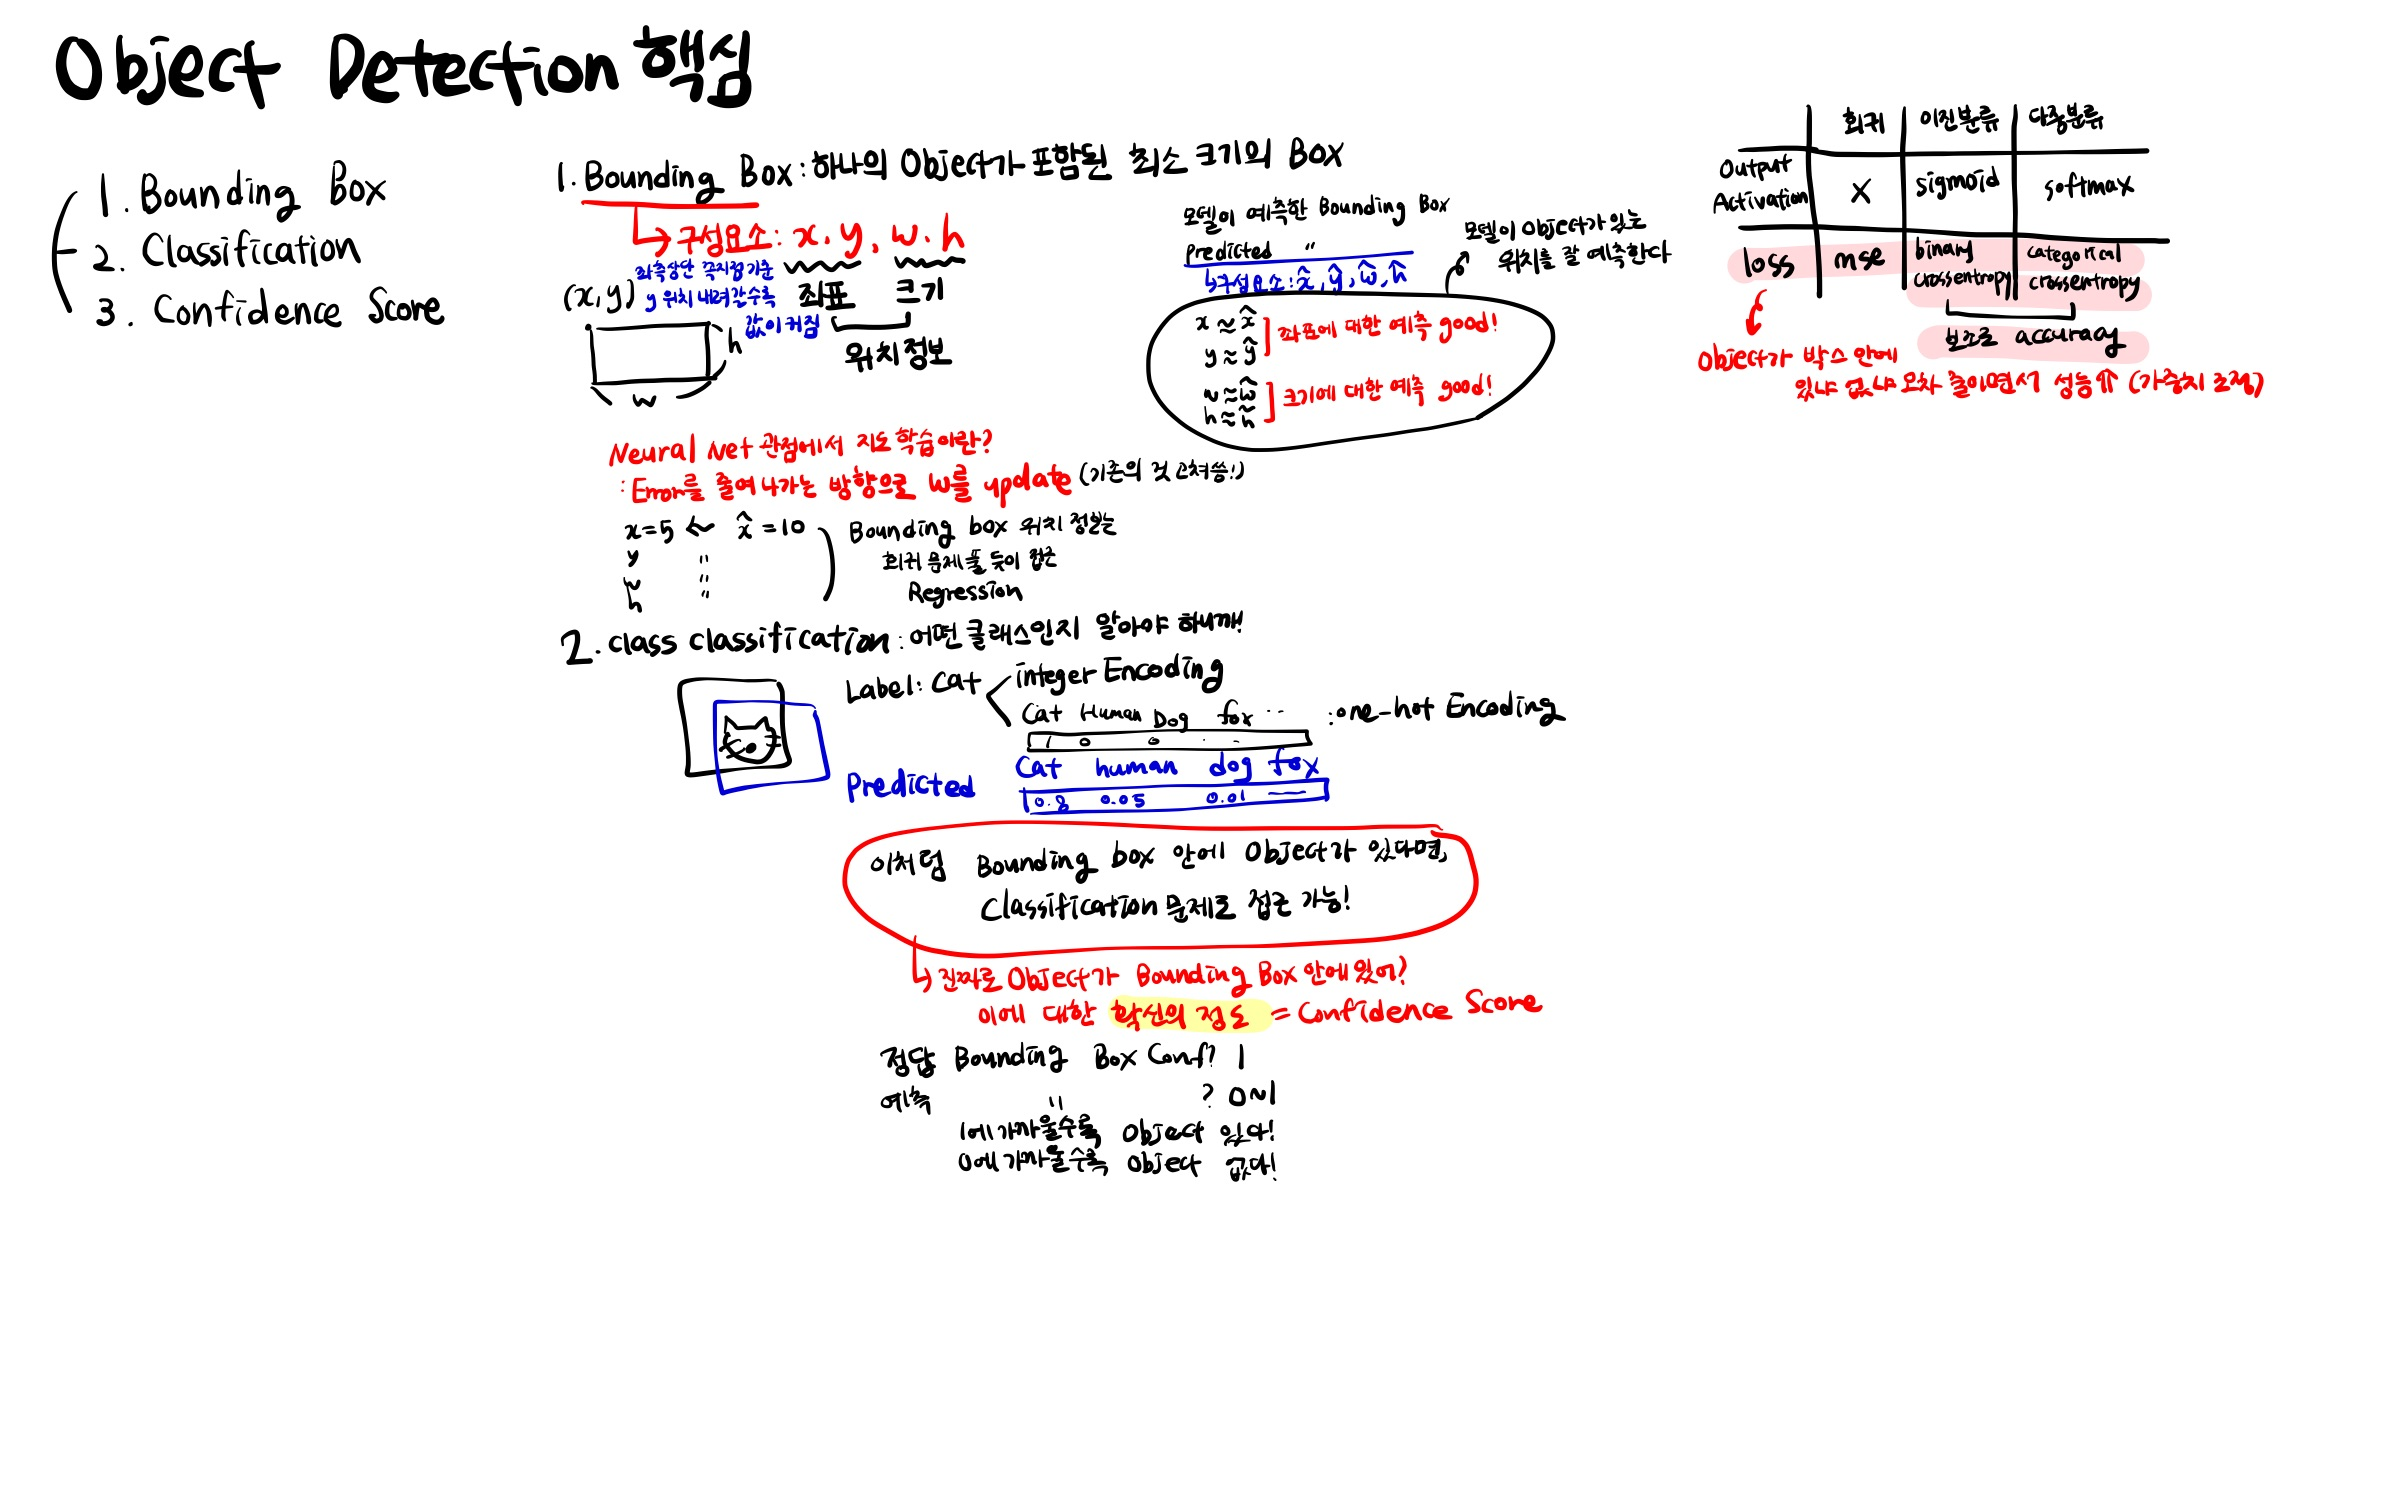 Object Detection 핵심
1. Bounding Box
2. Classification
3. Confidence Score
1. Bounding Box : 하나의 Object가 포함된 최소 크기의 Box
구성요소 : x, y, w, h
좌측상단 꼭지점 기준
y 위치 내려갈수록
값이 커짐
(x, y)
좌표 크기
위치 정보
h
w
모델이 예측한 Bounding Box
Predicted "
구성요소 : x̂, ŷ, ŵ, ĥ
모델이 Object가 있는
위치를 잘 예측한다
x ≈ x̂
y ≈ ŷ
좌표에 대한 예측 good!
w ≈ ŵ
h ≈ ĥ
크기에 대한 예측 good!
Neural Net 관점에서 지도 학습이란?
: Error를 줄여 나가는 방향으로 w를 update (기존의 것 고쳐씀!)
x = 5 ← x̂ = 10
y "
w "
h "
Bounding box 위치 정보는
회귀 문제 풀 듯이 접근
Regression
2. class classification : 어떤 클래스인지 알아야 하니깨!
Label : Cat
integer Encoding
Cat Human Dog fox ··
: one-hot Encoding
1 0 0 · ·
Predicted
Cat human dog fox
0.8 0.05 0.01 —
이처럼 Bounding box 안에 Object가 있다면,
Classification 문제로 접근 가능!
진짜로 Object가 Bounding Box 안에 있어?
이에 대한 확신의 정도 = Confidence Score
정답 Bounding Box Conf? 1
예측 " ? 0~1
1에 가까울수록 Object 있다!
0에 가까울수록 Object 없다!
회귀 이진분류 다중분류
Output
Activation
X sigmoid softmax
loss mse
binary
crossentropy
categorical
crossentropy
보조로 accuracy
Object가 박스 안에
있냐 없냐 오차 줄이면서 성능⇑ (가중치 조정)